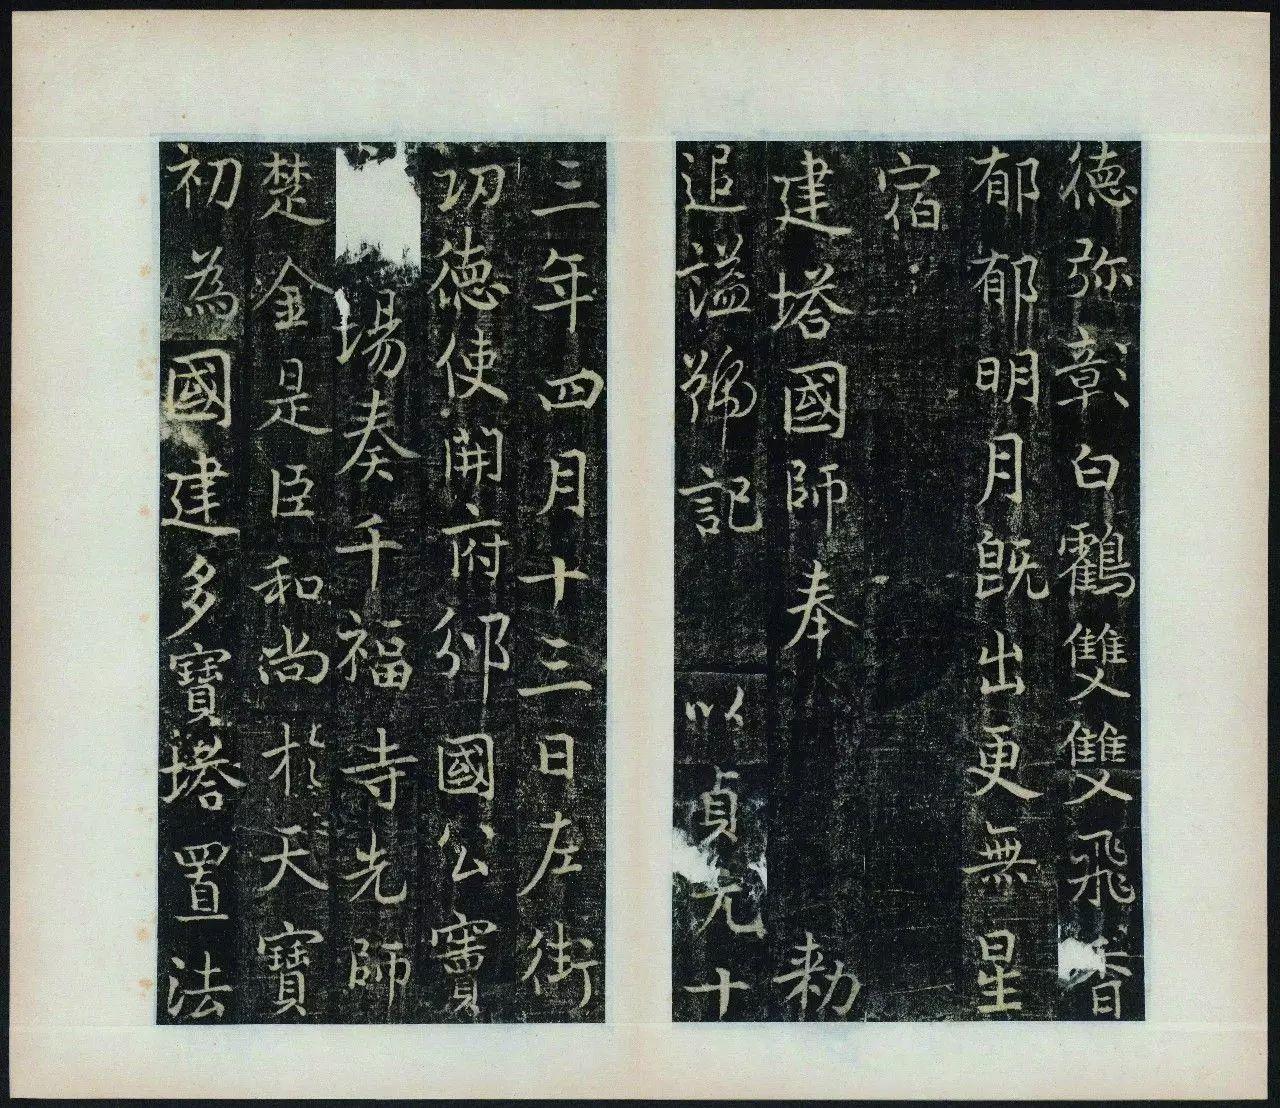 德弥彰白鶴雙雙飛香
郁郁明月既出更無星
宿
建塔國師奉 勅
追謚號記 以貞元十
三年四月十三日左街
功德使開府邠國公竇
場奏千福寺先師
楚金是臣和尚於天寶
初為國建多寶塔置法